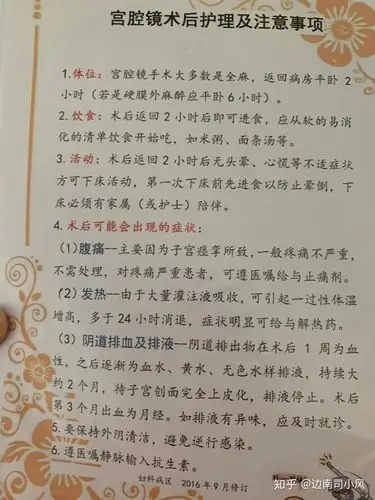 宫腔镜术后护理及注意事项
1.体位：宫腔镜手术大多数是全麻，返回病房平卧 2
小时（若是硬膜外麻醉应平卧 6 小时）。
2.饮食：术后返回 2 小时后即可进食，应从软的易消
化的清单饮食开始吃，如米粥、面条汤等。
3.活动：术后返回 2 小时后无头晕、心慌等不适症状
方可下床活动，第一次下床前先进食以防止晕倒，下
床必须有家属（或护士）陪伴。
4.术后可能会出现的症状：
（1）腹痛--主要因为子宫痉挛所致，一般疼痛不严重，
不需处理，对疼痛严重患者，可遵医嘱给与止痛剂。
（2）发热--由于大量灌注液吸收，可引起一过性体温
增高，多于 24 小时消退，症状明显可给与解热药。
（3）阴道排血及排液--阴道排出物在术后 1 周为血
性，之后逐渐为血水、黄水、无色水样排液，持续大
约 2 个月，待子宫创面完全上皮化，排液停止。术后
第 3 个月出血为月经。如排液有异味，应及时就诊。
5.要保持外阴清洁，避免逆行感染。
6.遵医嘱静脉输入抗生素。
妇科病区 2016 年 9 月修订
知乎 @边南司小风